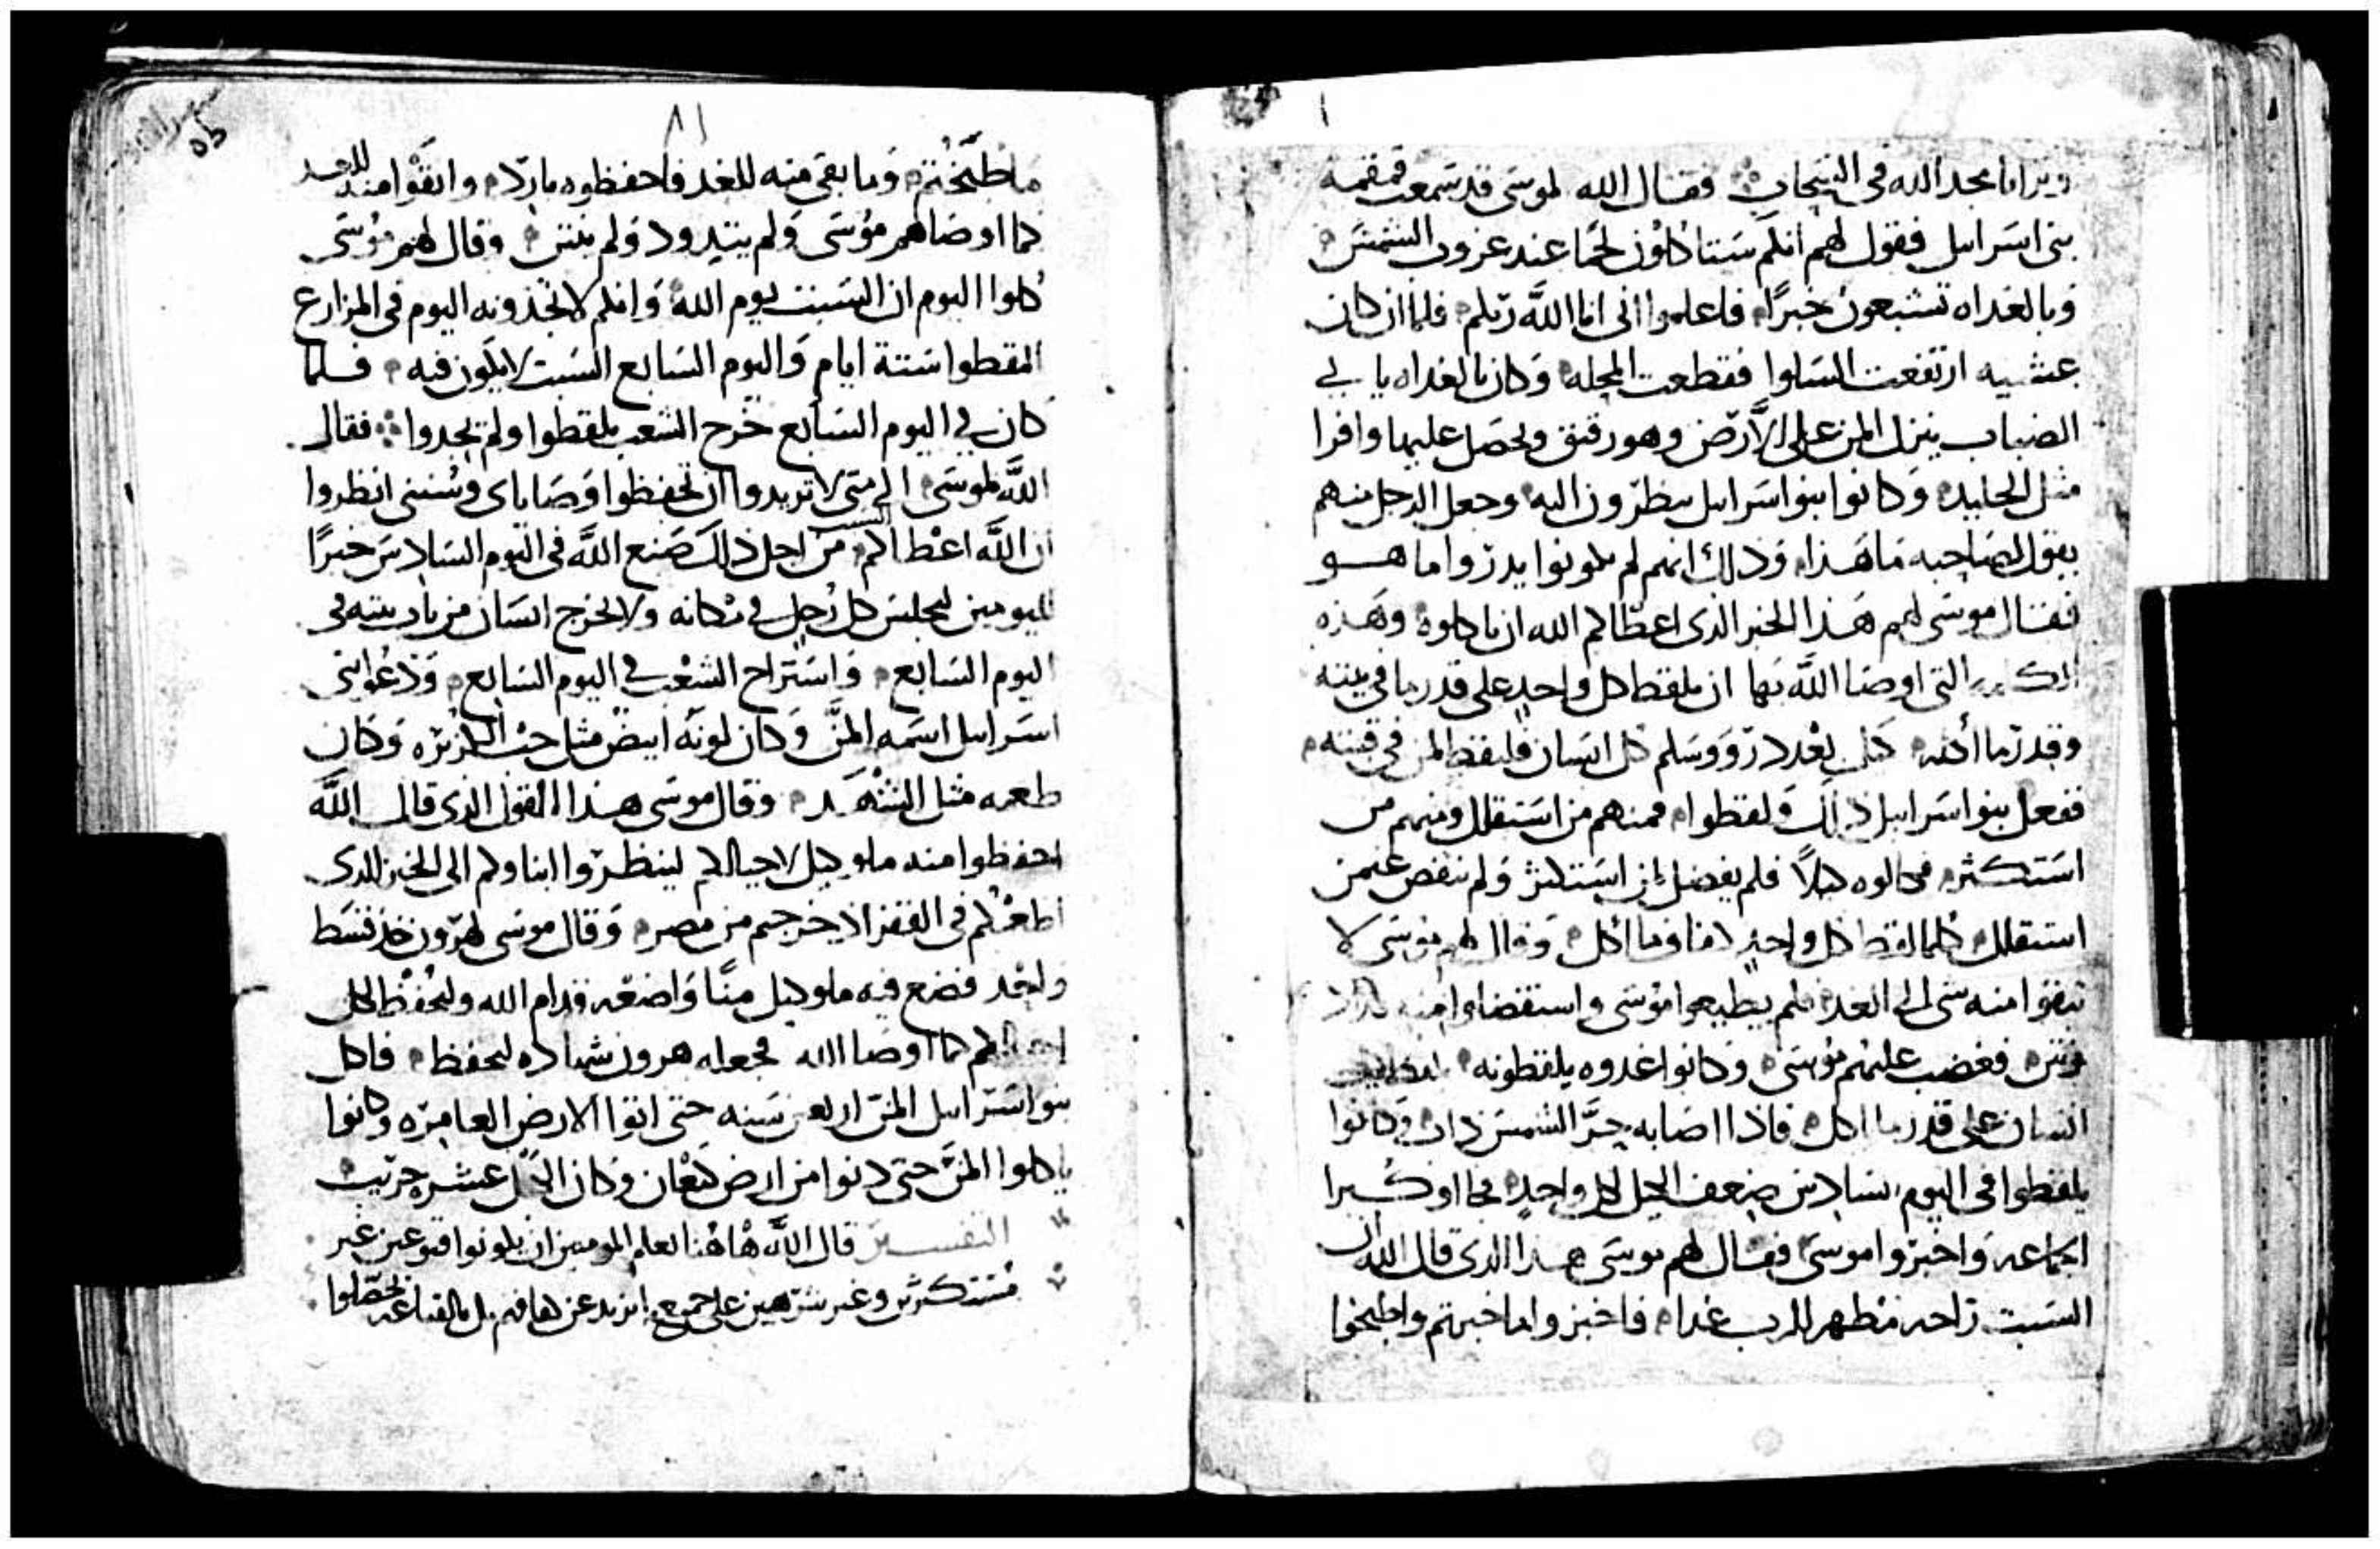 وتراياهم مجد الله فى السحاب فقال الله لموسى قد سمعت قمقمه
بنى اسرايل فقول لهم انكم ستاكلون لحما عند غروب الشمس
وبالغداه تشبعون خبزًا فاعلموا انى انا الله ربكم فلما ان كان
عشيه ارتفعت السلوا فقطعت المحله وكان بالغداه يا بى
الضباب ينزل المن على الارض وهو رقيق ويحصل عليها وافرا
مثل الجليد وكانوا بنوا اسرايل ينظرون اليه وجعل الرجل منهم
يقول لصاحبه ما هذا وذلك انهم لم يكونوا يدروا ما هو
فقال موسى لهم هذا الخبز الذى اعطاكم الله ان تاكلوه وهذه
التى اوصا الله بها ان يلقط كل واحد على قدر ما فى بيته
وقدر ما اكله كيل بعدد رووسكم كل انسان فليقط لمن فى قبته
ففعل بنوا اسرايل ذلك ولقطوا فمنهم من استقلل ومنهم من
استكثر فكالوه كيلاً فلم يفضل لمن استكثر ولم ينقص عمن
استقلل كلما لقط كل واحد كفافوما اكل وقال لهم موسى لا
تبقوا منه شى الى الغد فلم يطيعوا موسى واستفضلوا منه
ونتن فغضب عليهم موسى وكانوا غدوه يلقطونه
انسان على قدر ما اكل فاذا اصابه حرَّ الشمس ذاب وكانوا
يلقطوا فى اليوم السادس ضعف الكيل لكل واحد فجا او كبرا
الجماعه واخبروا موسى فقال لهم موسى هذا الذى قال الله ان
السبت راحه مطهر للرب غدا فاخبزوا ما خبزتم واطبخوا
٨١
ما طبختم وما بقى منه للغد فاحفظوه باردا وابقوا منه للغد
كما اوصاهم موسى ولم يتدود ولم ينتن وقال لهم موسى
كلوا اليوم ان السبت يوم الله وانكم لا تجدونه اليوم فى المزارع
القطوا ستة ايام واليوم السابع السبت لا يكون فيه فلما
كان فى اليوم السابع خرج الشعب يلقطوا ولم يجدوا فقال
الله لموسى الى متى لا تريدوا ان تحفظوا وصاياى وسننى انظروا
ان الله اعطاكم السبت من اجل ذلك صنع الله فى اليوم السادس خبزًا
ليومين ليجلس كل رجل فى مكانه ولا يخرج انسان من باب بيته فى
اليوم السابع واستراح الشعب فى اليوم السابع ودعوا بنى
اسرايل اسمه المنّ وكان لونه ابيض مثل حب الكزبره وكان
طعمه مثل الشهد وقال موسى هذا القول الذى قال الله
احفظوا منه ملو كيل لاجيالكم لينظروا ابناوكم الى الخبز الذى
اطعمكم فى القفر اذ خرجتم من مصر وقال موسى لهرون خذ قسط
واحد فضع فيه ملو كيل منًا واضعه قدام الله وليحفظ لكل
اجيالكم كما اوصا الله فجعله هرون شهاده ليحفظ فاكل
بنوا اسرايل المن اربعين سنه حتى اتوا الارض العامره وكانوا
ياكلوا المنّ حتى دنوا من ارض كنعان وكان الكيل عشر جريب
التفسير قال الله هاهنا لعلم المومنين ان يكونوا قنوعين غير
مستكثرين وغير شرهين على جميع ما يزيد عن كفافهم بل بالقناعه يحصلوا